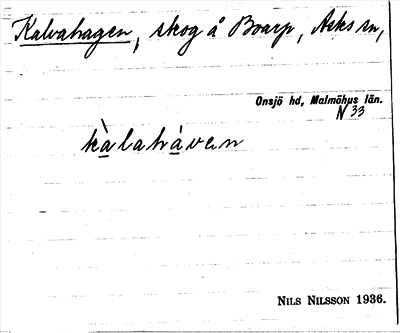 Kalvahagen, skog å Boarp, Asks sn,
Onsjö hd, Malmöhus län.
N 33
kàlahávan
NILS NILSSON 1936.